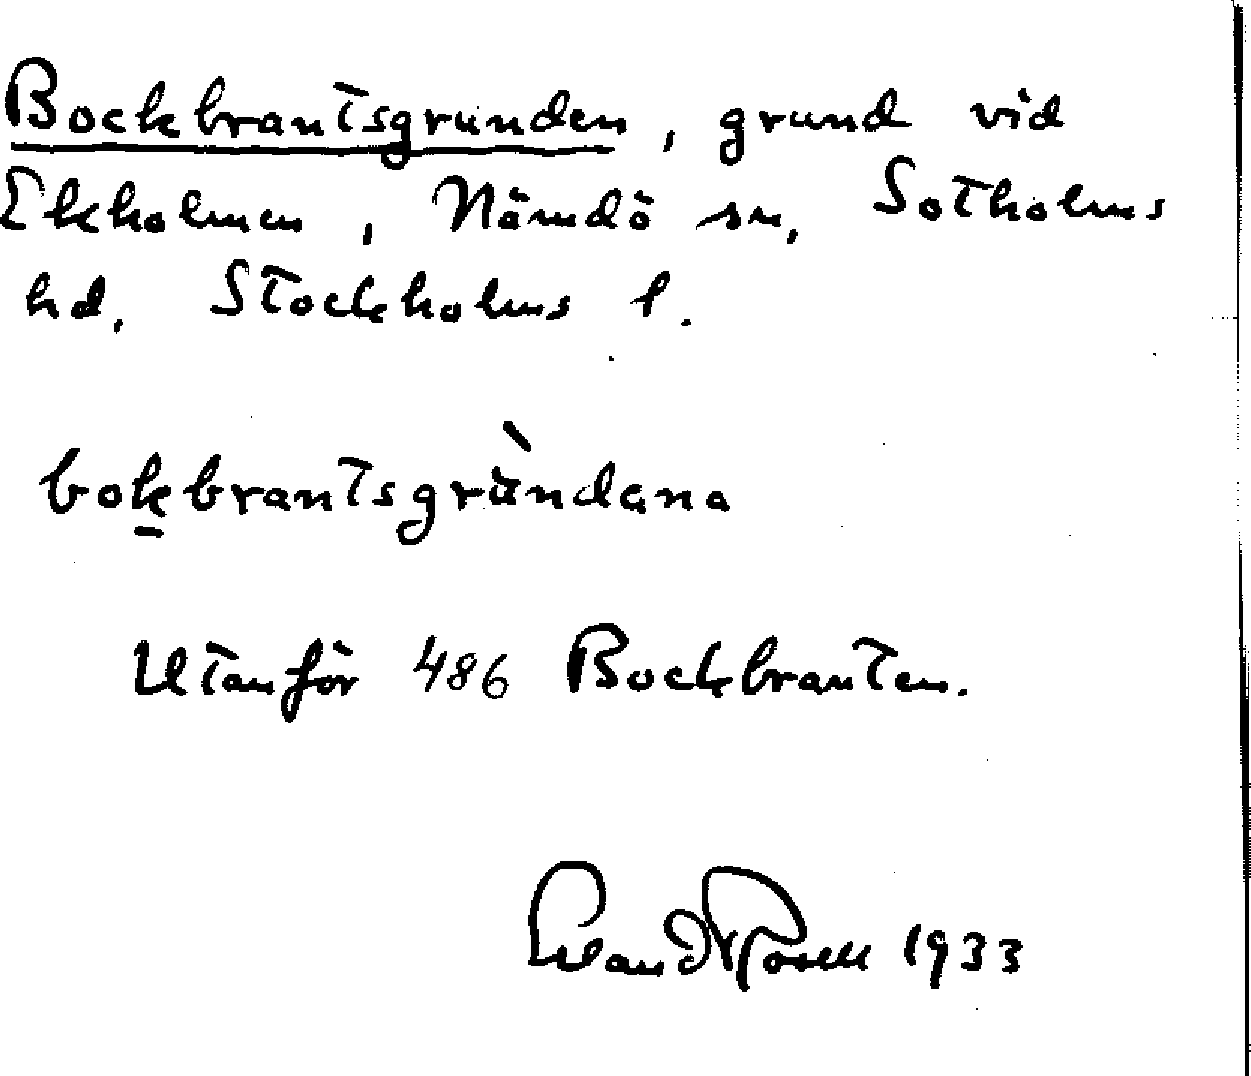 Bockbrantsgrunden, grund vid
Ekholmen, Nämdö sn, Sotholms
hd. Stockholms l.
bok̠brantsgrùndana
Utanför 486 Bockbranten.
Erland Rosell 1933